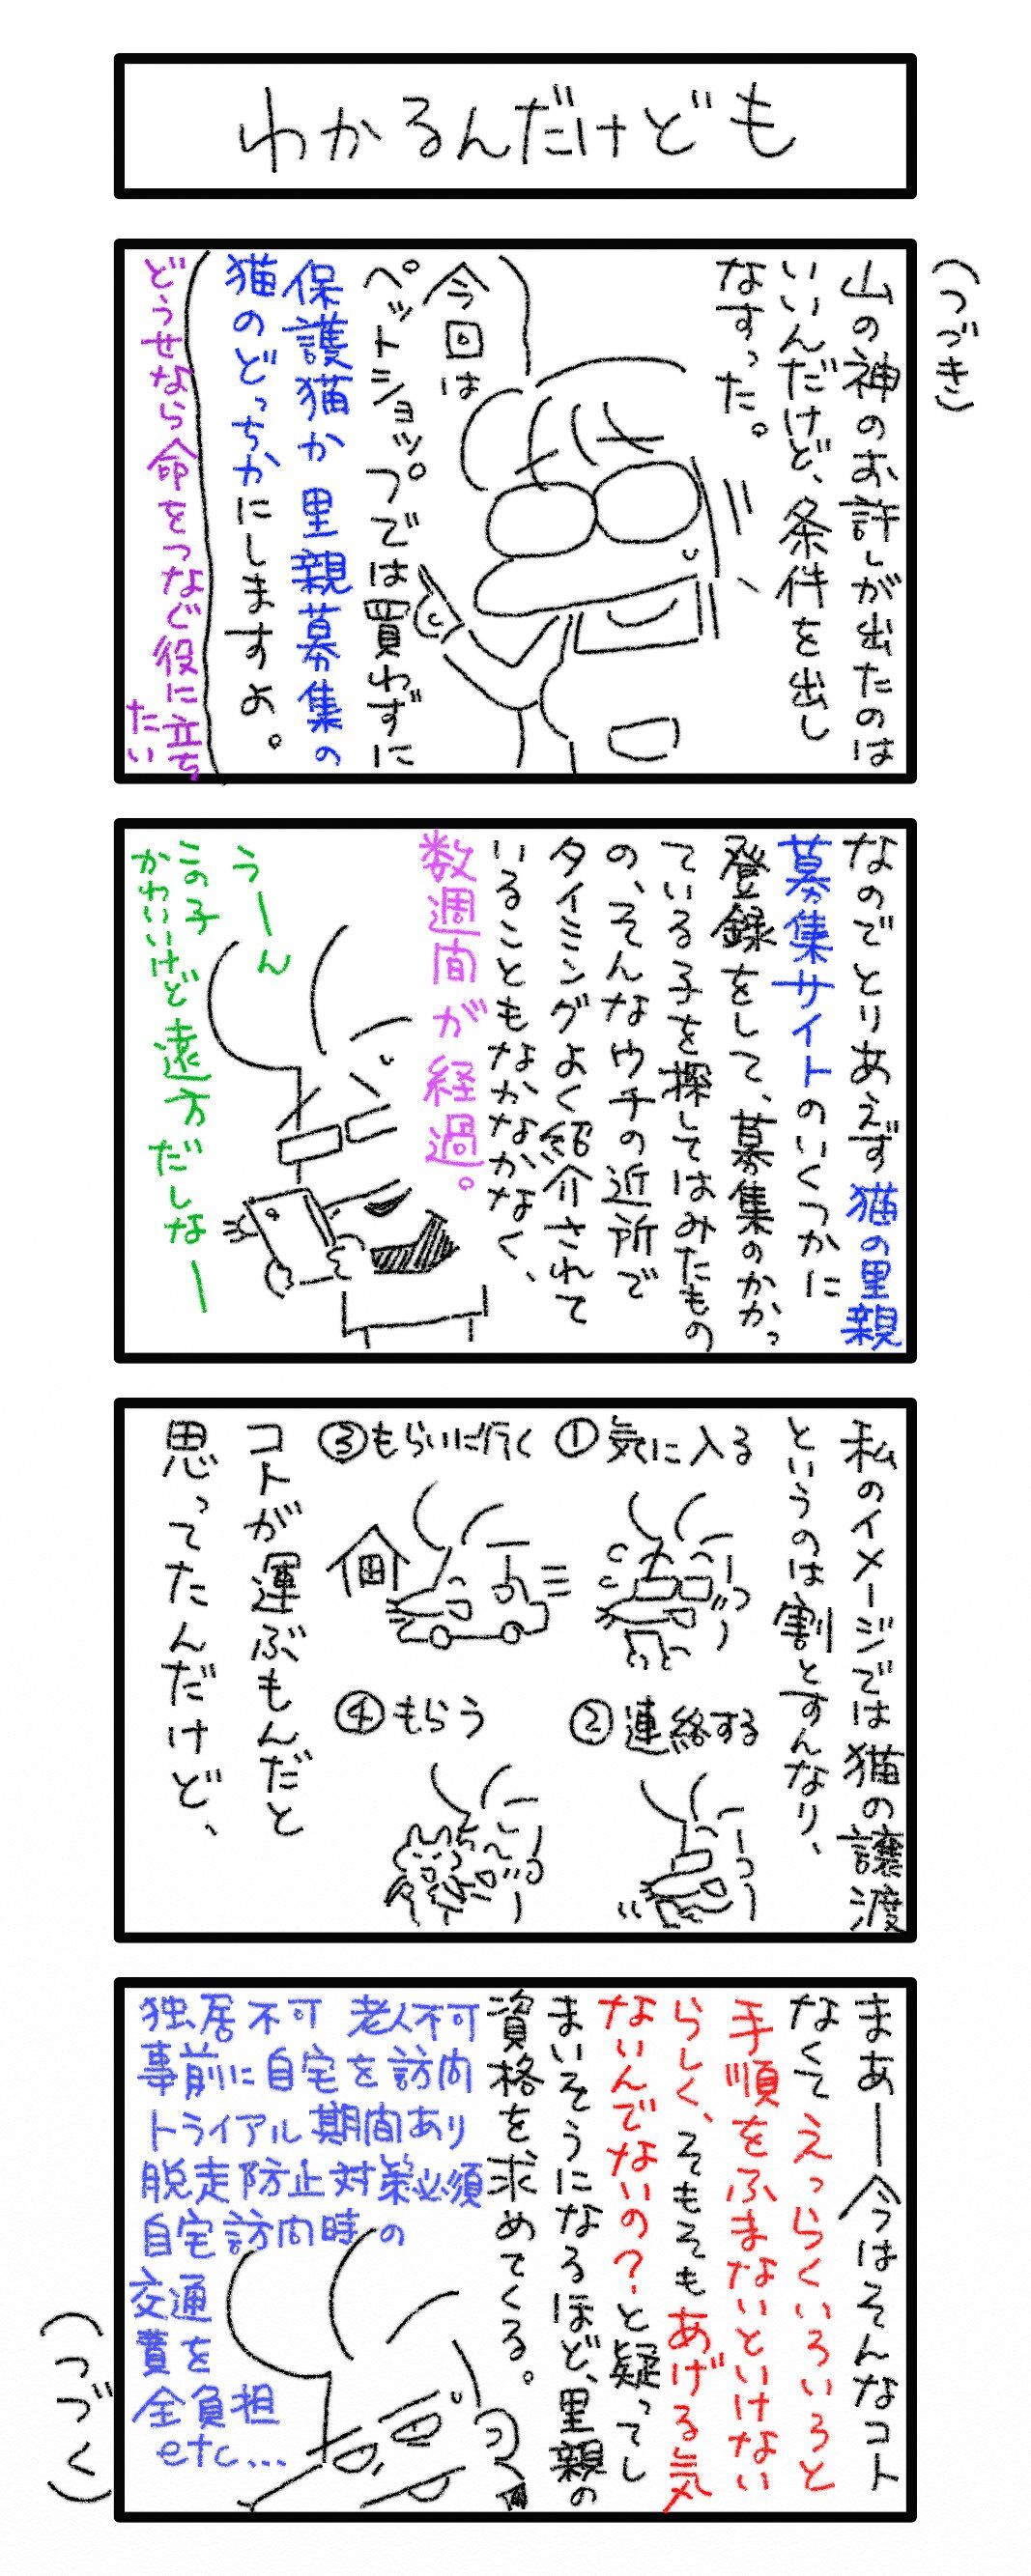 わかるんだけども
(つづき)
山の神のお許しが出たのは
いいんだけど、条件を出し
なすった。
今回は
ペットショップでは買わずに
保護猫か里親募集の
猫のどっちかにしますよ。
どうせなら命をつなぐ役に立ち
たい
なのでとりあえず猫の里親
募集サイトのいくつかに
登録をして、募集のかかっ
ている子を探してはみたもの
の、そんなウチの近所で
タイミングよく紹介されて
いることもなかなかなく、
数週間が経過。
うーん
この子
かわいいけど遠方だしなー
私のイメージでは猫の譲渡
というのは割とすんなり、
①気に入る
②連絡する
③もらいに行く
④もらう
コトが運ぶもんだと
思ってたんだけど、
まあー今はそんなコト
なくてえっらくいろいろと
手順をふまないといけない
らしく、そもそもあげる気
ないんでないの?と疑ってし
まいそうになるほど、里親の
資格を求めてくる。
独居不可 老人不可
事前に自宅を訪問
トライアル期間あり
脱走防止対策必須
自宅訪問時の
交通
費を
全負担
etc...
(つづく)